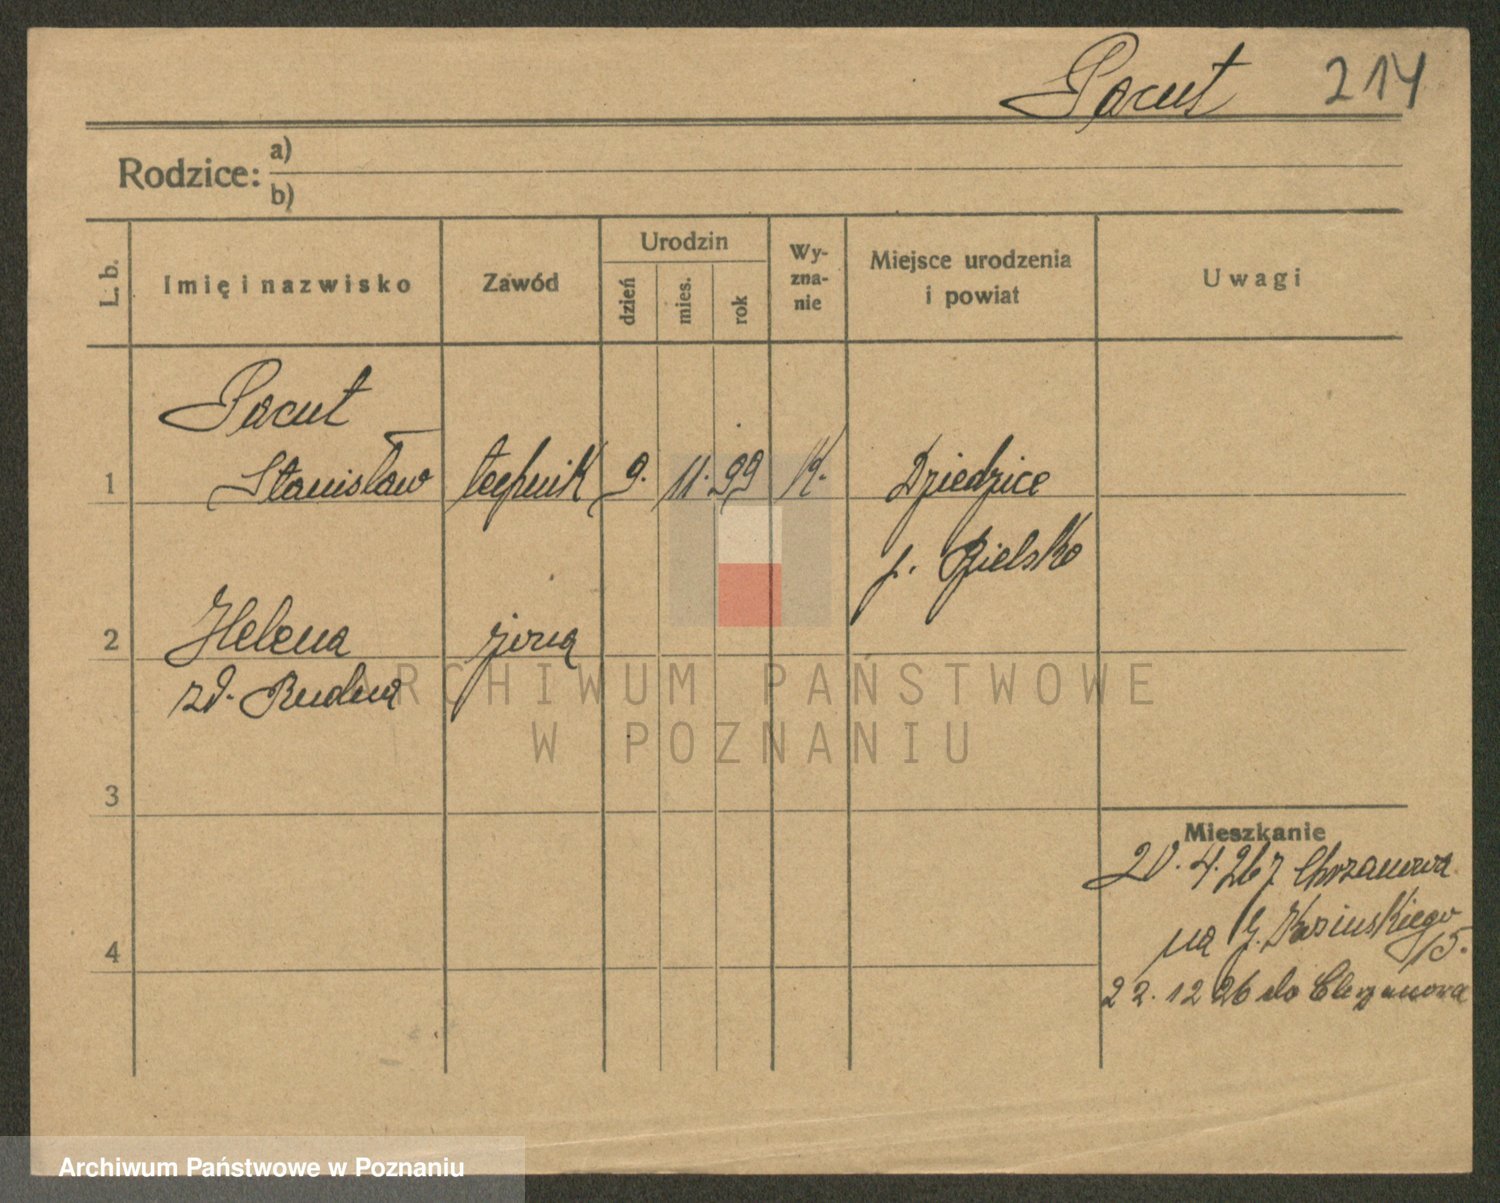 Pacut 214
Rodzice: a)
b)
L. b. Imię i nazwisko Zawód Urodzin dzień mies. rok Wy-zna-nie Miejsce urodzenia i powiat Uwagi
Pacut
1 Stanisław technik 9. 11. 99 K. Dziedzice
p. Bielsko
2 Helena żona
zd. Rudna
ARCHIWUM PAŃSTWOWE
W POZNANIU
3
Mieszkanie
20. 4. 26 z Chrzanowa
na
15.
4
22. 12 26 do Chrzanowa
Archiwum Państwowe w Poznaniu